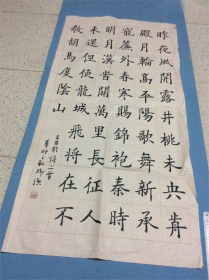 昨夜風開露井桃未央前
殿月輪高平陽歌舞新承
寵簾外春寒賜錦袍秦時
明月漢時關萬里長征人
未還但使龍城飛將在不
教胡馬度陰山
王昌齡詩二首
辛卯之秋